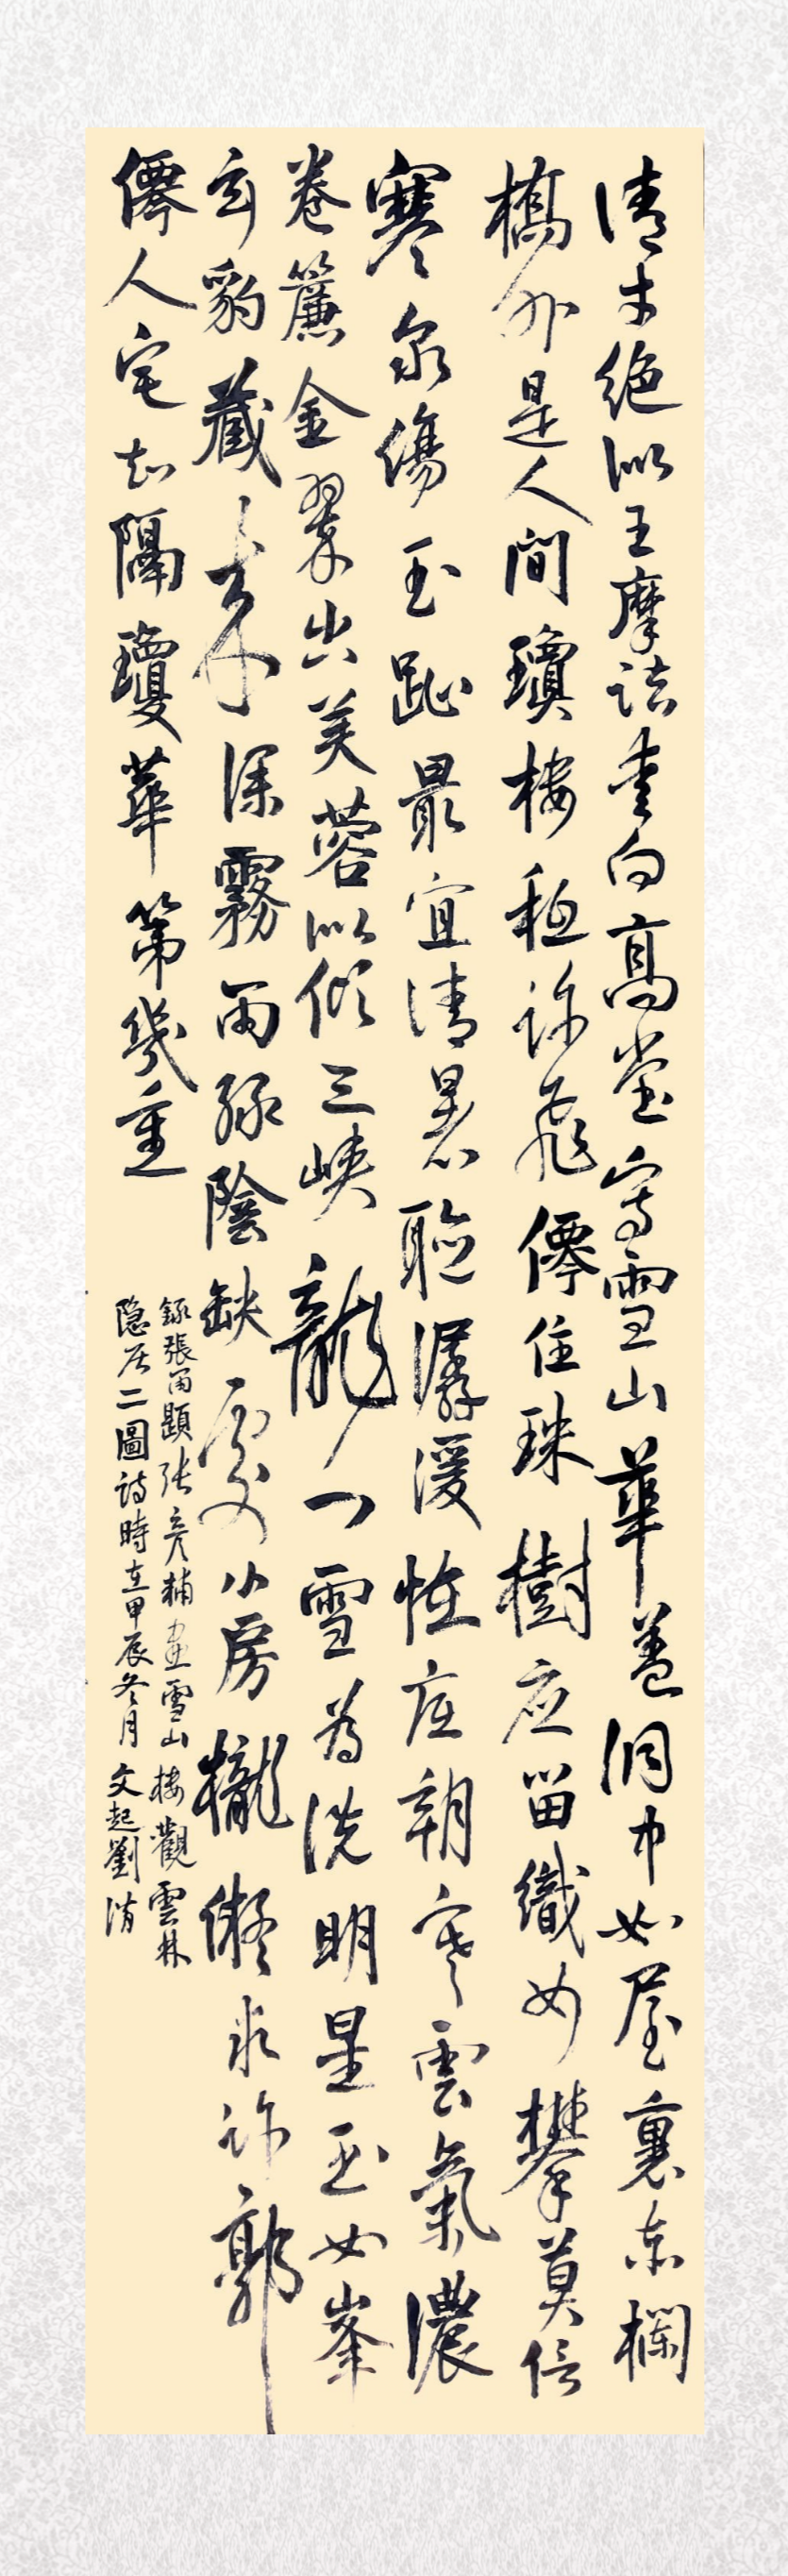 清才絕似王摩詰畫向高堂寫雪山華蓋洞中如屋裏赤欄
橋外是人間瓊樓秪許飛僊住珠樹应留織女攀莫信
寒泉傷玉趾最宜清暑聽潺湲恠底朝寒雲氣濃
卷簾金翠出芙蓉似傾三峽龍門雪為洗明星玉女峯
玄豹藏来深霧雨綠陰缺處小房櫳儗求許郭
僊人宅知隔瓊華第幾重
錄張雨題張彥輔畫雪山樓觀雲林
隱居二圖詩時在甲辰冬月文起劉